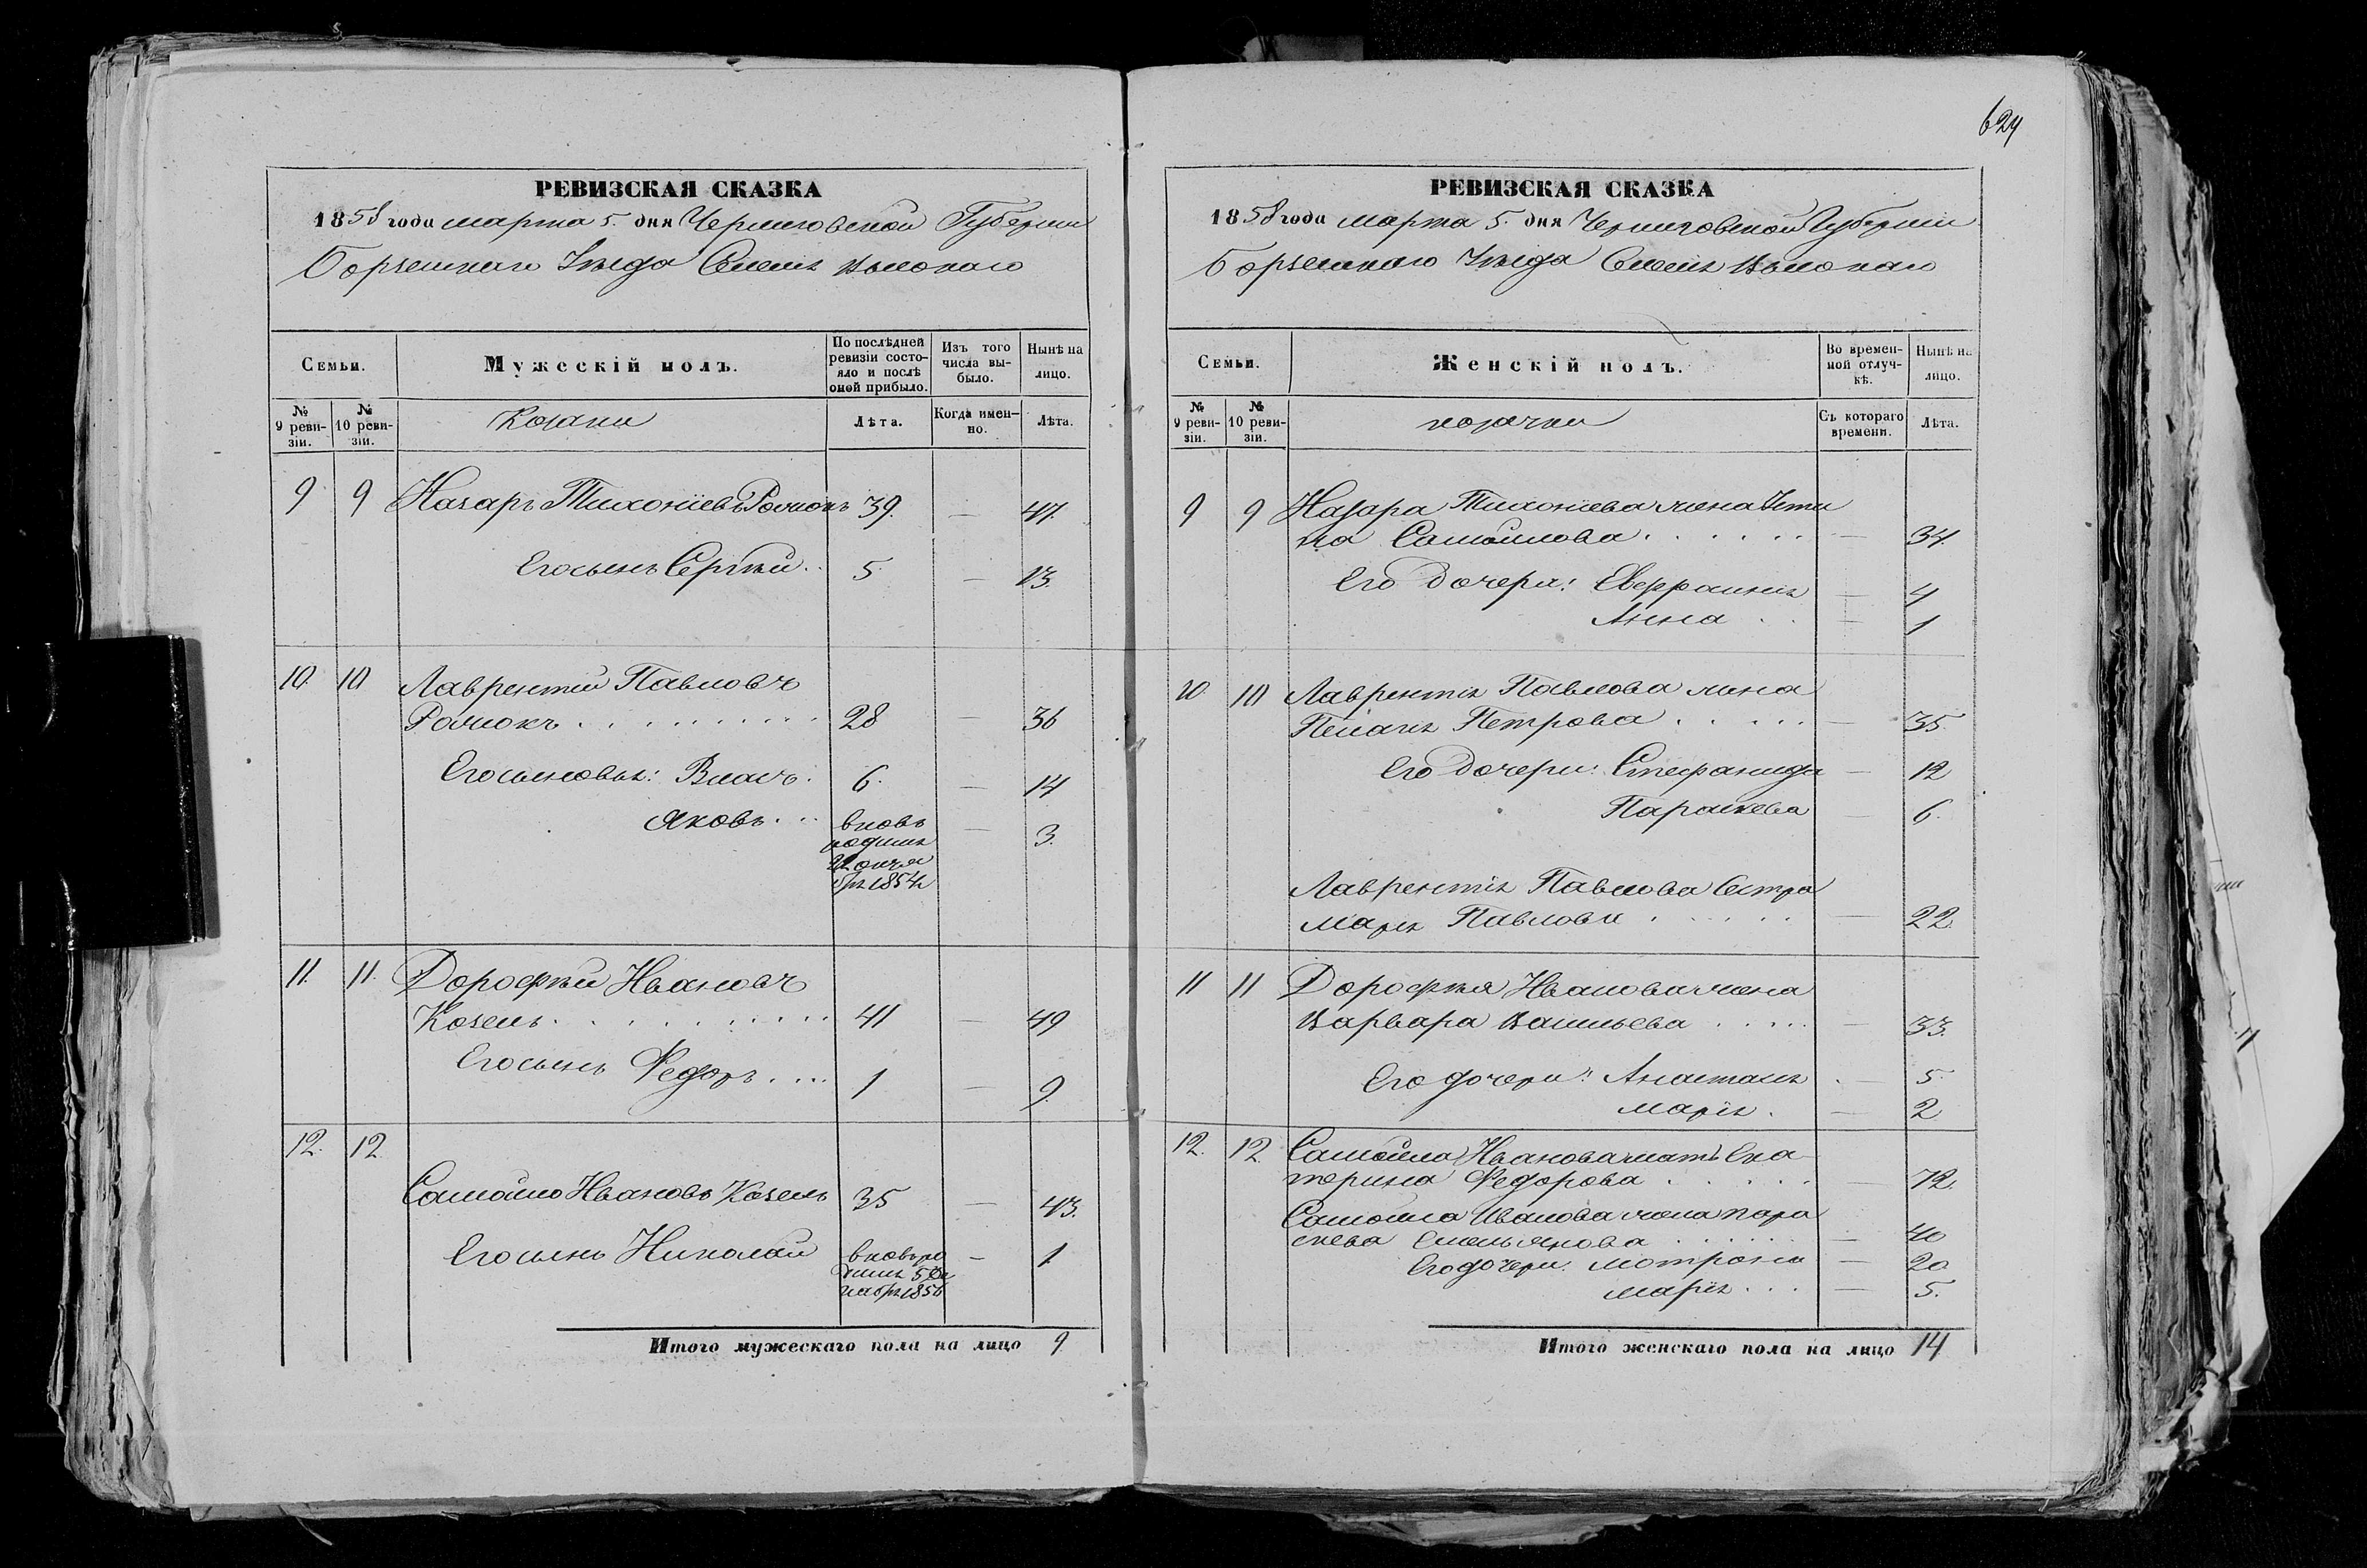 624
РЕВИЗСКАЯ СКАЗКА
1858 года марта 5 дня Черниговской Губернии
Борзенскаго Уезда Села Высокаго
Семьи.
Мужескій полъ.
По послѣдней ревизіи состояло и послѣ оной прибыло.
Изъ того числа выбыло.
Нынѣ на лицо.
№ 9 ревизіи.
№ 10 ревизіи.
Козаки
Лѣта.
Когда именно.
Лѣта.
9 9 Назаръ Тихоніевъ 39. — 47.
Его сынъ Сергѣй 5 — 13.
10. 10 Лаврентій Павловъ
28 — 36
Его сыновья: Власъ 6. — 14
Яковъ вновь — 3.
1854
11. 11. Дорофѣй Ивановъ
Козелъ 41 — 49
Его сынъ Федоръ 1 — 9.
12. 12.
Самойло Ивановъ Козелъ 35 — 43.
Его сынъ Николай — 1
1856
Итого мужескаго пола на лицо 9
РЕВИЗСКАЯ СКАЗКА
1858 года марта 5 дня Черниговской Губерніи
Борзенскаго Уезда Села Высокаго
Семьи.
Женскій полъ.
Во временной отлучкѣ.
Нынѣ на лицо.
№ 9 ревизіи.
№ 10 ревизіи.
козачки
Съ котораго времени.
Лѣта.
9 9 Назара Тихоніева жена Усти
на Самойлова — 34.
Его дочери: — 4
Анна — 1
10. 10 Лаврентія Павлова жена
Пелагія Петрова — 35.
Его дочери: Стефанида — 12
Параскева — 6.
Лаврентія Павлова сестра
Марія Павлова — 22.
11 11 Дорофѣя Иванова жена
Варвара Васильева — 33.
Его дочери: Анастасія — 5
Марія — 2
12. 12. Самойла Иванова мать Ека
терина Федорова — 72.
Самойла Иванова жена Пара
скева Емельянова — 40
Его дочери: Мотрона — 20
Марія — 5.
Итого женскаго пола на лицо 14